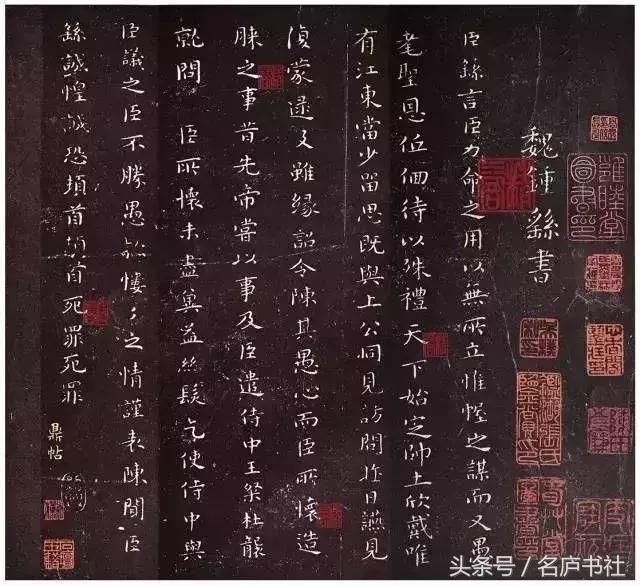 魏鍾繇書
臣繇言臣力命之用以無所立惟幄之謀而又愚
耄聖恩低佪待以殊禮天下始定師土欣戴唯
有江東當少留思既與上公同見訪問昨日讌見
復蒙逮及雖緣詔令陳其愚心而臣所懷造
膝之事昔先帝嘗以事及臣遣侍中王粲杜襲
就問 臣所懷未盡冀益絲髮乞使侍中與
臣議之臣不勝愚欵慺々之情謹表陳聞臣
繇誠惶誠恐頓首頓首死罪死罪
鼎帖
头条号/名庐书社